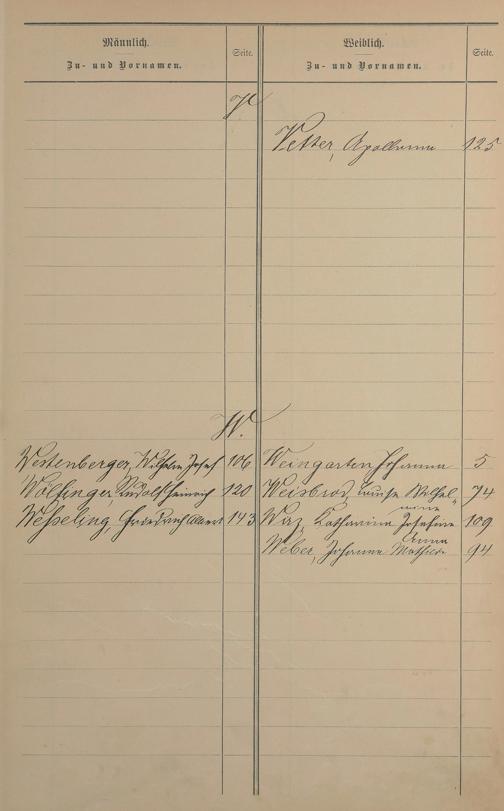 Männlich.
Zu- und Vornamen.
Seite.
Weiblich.
Zu- und Vornamen.
Seite.
V
Vetter, Apollonia 125
W.
Westenberger, Wilhelm Josef 106
Wölfinger, Rudolf Heinrich 120
Weßeling, Friedrich Albert 143
Weingarten, Johanna 5
Weisbrod, Luise Wilhel- 74
mine
Katharina Josefine 109
Anna
Weber, Johanna Mathilde 94